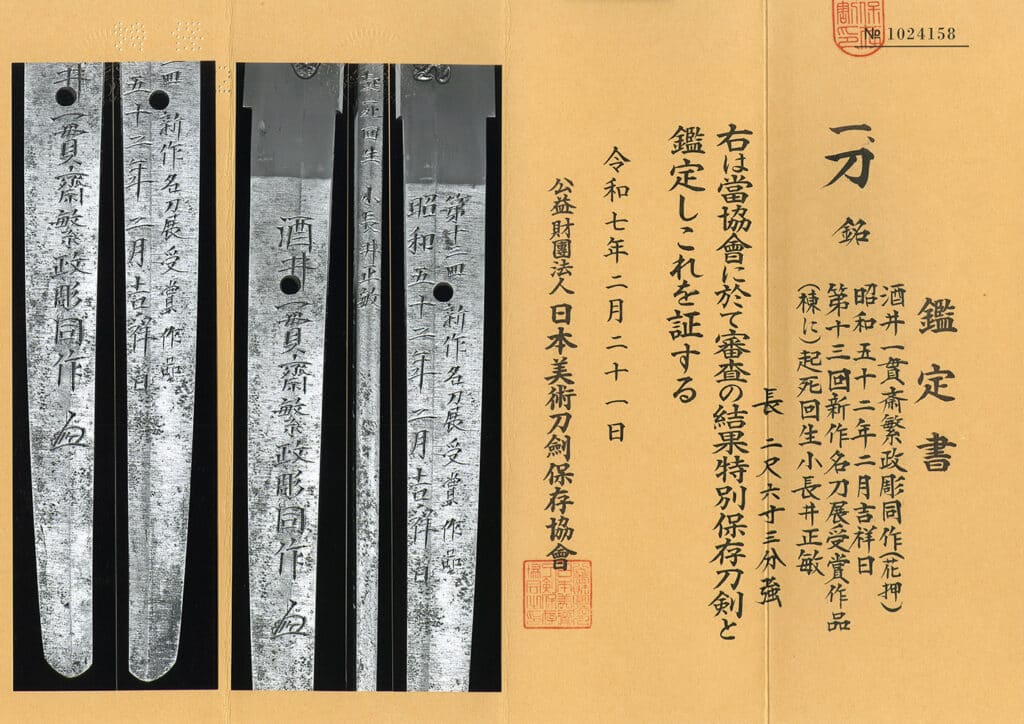 № 1024158
鑑定書
一、刀 銘
酒井一貫斎繁政彫同作(花押)
昭和五十二年二月吉祥日
第十三回新作名刀展受賞作品
(棟に)起死回生小長井正敏
長 二尺六寸三分強
右は當協會に於て審査の結果特別保存刀剣と
鑑定しこれを証する
令和七年二月二十一日
公益財團法人 日本美術刀劍保存協會
第十三回 新作名刀展受賞作品
昭和五十二年二月吉祥日
起死回生 小長井正敏
酒井一貫斎繁政彫同作
回 新作名刀展受賞作品
五十二年二月吉祥日
井一貫斎繁政彫同作